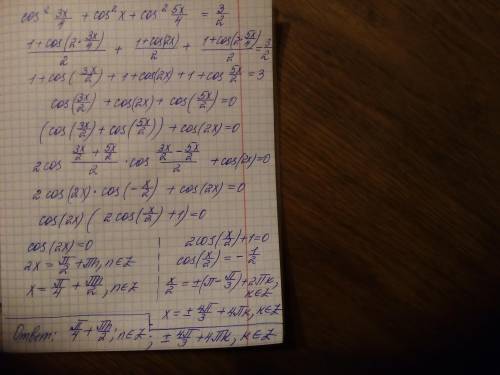 cos² 3x/4 + cos² x + cos² 5x/4 = 3/2
(1+cos(2·3x/4))/2 + (1+cos(2x))/2 + (1+cos(2·5x/4))/2 = 3/2
1+cos(3x/2) + 1+cos(2x) + 1+cos 5x/2 = 3
cos(3x/2) + cos(2x) + cos(5x/2) = 0
(cos(3x/2) + cos(5x/2)) + cos(2x) = 0
2cos (3x/2 + 5x/2)/2 · cos (3x/2 - 5x/2)/2 + cos(2x) = 0
2cos(2x) · cos(-x/2) + cos(2x) = 0
cos(2x)(2cos(x/2) + 1) = 0
cos(2x) = 0
2x = π/2 + πn, n∈Z
x = π/4 + πn/2, n∈Z
2cos(x/2) + 1 = 0
cos(x/2) = -1/2
x/2 = ±(π - π/3) + 2πk, k∈Z
x = ± 4π/3 + 4πk, k∈Z
Ответ: π/4 + πn/2; n∈Z; ± 4π/3 + 4πk, k∈Z